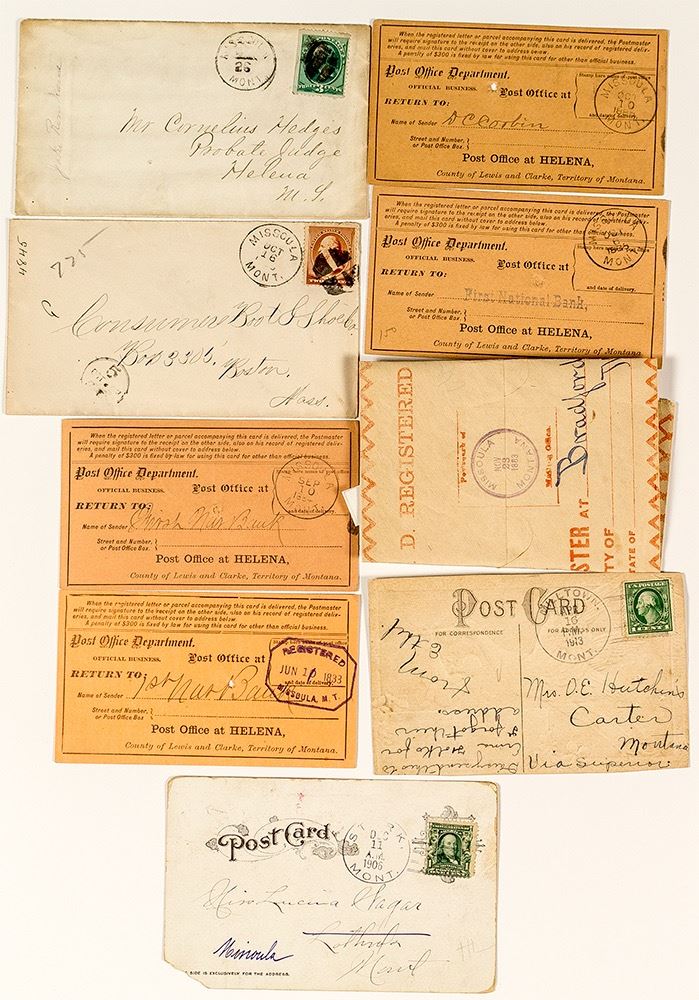 MISSOULA
26
MONT.
Mr Cornelius Hedges
Probate Judge
Helena
M. T.
When the registered letter or parcel accompanying this card is delivered, the Postmaster
will require signature to the receipt on the other side, also on his record of registered deliv-
eries, and mail this without cover to address below.
A penalty of $300 is fixed by law for using this card for other than official business.
Post Office Department.
OFFICIAL BUSINESS.
Post Office at
RETURN TO:
and date of delivery.
MISSOULA
OCT
10
MONT.
Name of Sender D C Corbin
Street and Number,
or Post Office Box.
Post Office at HELENA,
County of Lewis and Clarke, Territory of Montana.
will require signature to the receipt on the other side, also on his record of registered deliv-
eries, and mail this without cover to address below.
A penalty of $300 is fixed by law for using this card for other than official business.
Post Office Department.
OFFICIAL BUSINESS.
Post Office at
RETURN TO:
and date of delivery.
MONT.
Name of Sender First National Bank,
Street and Number,
or Post Office Box.
Post Office at HELENA,
County of Lewis and Clarke, Territory of Montana
150
4848
775
MISSOULA
OCT
16
MONT.
Consumers Boot & Shoe Co
Box 3305,
Boston,
Mass.
D. REGISTERED
MISSOULA
NOV
28
1883
MONTANA
Bradford
STER AT
TY OF
STATE OF
When the registered letter or parcel accompanying this card is delivered, the Postmaster
will require signature to the receipt on the other side, also on his record of registered deliv-
eries, and mail this without cover to address below.
A penalty of $300 is fixed by law for using this card for other than official business.
Post Office Department.
OFFICIAL BUSINESS.
Post Office at
RETURN TO:
and date of delivery.
SEP
10
Name of Sender First Nat Bank
Street and Number,
or Post Office Box.
Post Office at HELENA,
County of Lewis and Clarke, Territory of Montana.
When the registered letter or parcel accompanying this card is delivered, the Postmaster
will require signature to the receipt on the other side, also on his record of registered deliv-
eries, and mail this without cover to address below.
A penalty of $300 is fixed by law for using this card for other than official business.
Post Office Department.
OFFICIAL BUSINESS.
Post Office at
RETURN TO:
REGISTERED
JUN 1883
MISSOULA, M. T.
Name of Sender 1st Nat Bank
Street and Number,
or Post Office Box.
Post Office at HELENA,
County of Lewis and Clarke, Territory of Montana.
POST CARD
FOR CORRESPONDENCE
FOR ADDRESS ONLY
16
1913
MONT.
U.S. POSTAGE
From
Ethel
address.
I forgot
Mrs. O. E. Hutchins
Carter
Montana
Via Superior.
Post Card
DEC
11
A.M.
1906
MONT.
Miss Lucina Sagar
Lothrop
Missoula
Mont
SIDE IS EXCLUSIVELY FOR THE ADDRESS.